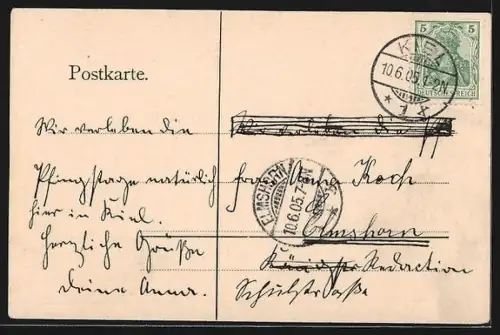 5 5
DEUTSCHES REICH
KIEL
10.6.05.7-8N
* 1 X
Postkarte.
Wir verleben die
Pfingsttage natürlich
hier in Kiel.
Herzliche Grüße
Deine Anna.
Wir verleben die Pf
Frau Anna Koch
Elmshorn
Redaction
Schulstraße
ELMSHORN
10.6.05.7-8N